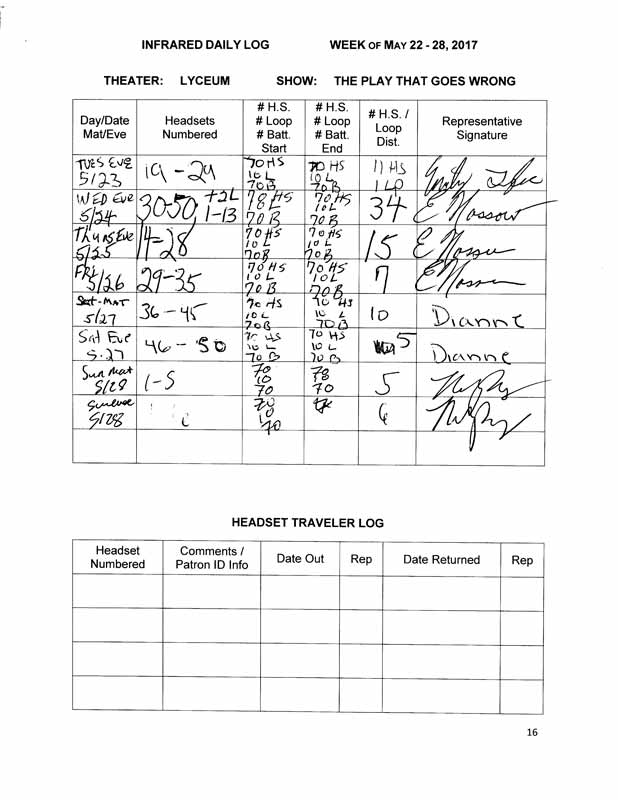 INFRARED DAILY LOG WEEK OF MAY 22 - 28, 2017
THEATER: LYCEUM SHOW: THE PLAY THAT GOES WRONG
Day/Date Mat/Eve Headsets Numbered # H.S. # Loop # Batt. Start # H.S. # Loop # Batt. End # H.S. / Loop Dist. Representative Signature
TUES EVE 5/23 19 - 29 70 HS 10 L 70 B 70 HS 10 L 70 B 11 HS 1 LP
WED EVE 5/24 30-50, +2L 1-13 78 HS 18L 70 B 70 HS 10L 70 B 34 E Mossow
Thurs Eve 5/25 14-28 70 HS 10 L 70B 70 HS 10 L 70B 15 E
FRI 5/26 29-35 70 HS 10 L 70 B 70 HS 10L 70B 7 E
Sat-Mat 5/27 36 - 45 70 HS 10 L 70B 70 HS 10 L 70B 10 Dianne
Sat Eve 5.27 46 - 50 70 HS 10 L 70 B 70 HS 10 L 70 B 5 Dianne
Sun Mat 5/28 1-5 70 10 70 78 70 5
5/28 70 10 70 6
HEADSET TRAVELER LOG
Headset Numbered Comments / Patron ID Info Date Out Rep Date Returned Rep
16